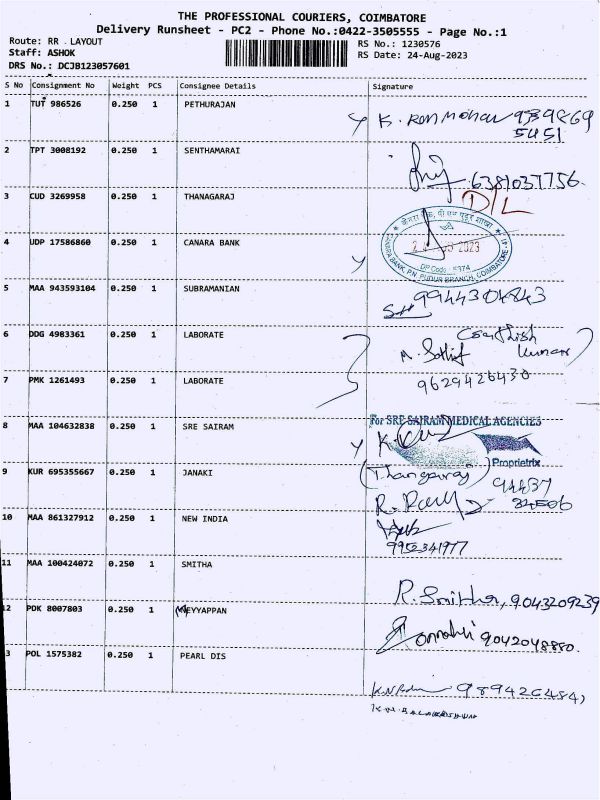 THE PROFESSIONAL COURIERS, COIMBATORE
Delivery Runsheet - PC2 - Phone No.:0422-3505555 - Page No.:1
Route: RR . LAYOUT
RS No.: 1230576
Staff: ASHOK
RS Date: 24-Aug-2023
DRS No.: DCJB123057601
S No Consignment No Weight PCS Consignee Details Signature
1 TUT 986526 0.250 1 PETHURAJAN
K. Ram Mohan 9339869
5451
2 TPT 3008192 0.250 1 SENTHAMARAI
6381037756
3 CUD 3269958 0.250 1 THANAGARAJ
D/L
4 UDP 17586860 0.250 1 CANARA BANK
2023
DP Code : 8374
CANARA BANK, P.N. PUDUR BRANCH, COIMBATORE
5 MAA 943593104 0.250 1 SUBRAMANIAN
9944304843
6 DDG 4983361 0.250 1 LABORATE
Kumar
7 PMK 1261493 0.250 1 LABORATE
9629426430
8 MAA 104632838 0.250 1 SRE SAIRAM
For SRE SAIRAM MEDICAL AGENCIES
Proprietrix
(Thangaraj)
9 KUR 695355667 0.250 1 JANAKI
94437
10 MAA 861327912 0.250 1 NEW INDIA
9952341977
11 MAA 100424072 0.250 1 SMITHA
R. Smitha, 9043209239
12 PDK 8007803 0.250 1 MEYYAPPAN
9042048880.
3 POL 1575382 0.250 1 PEARL DIS
9894264847